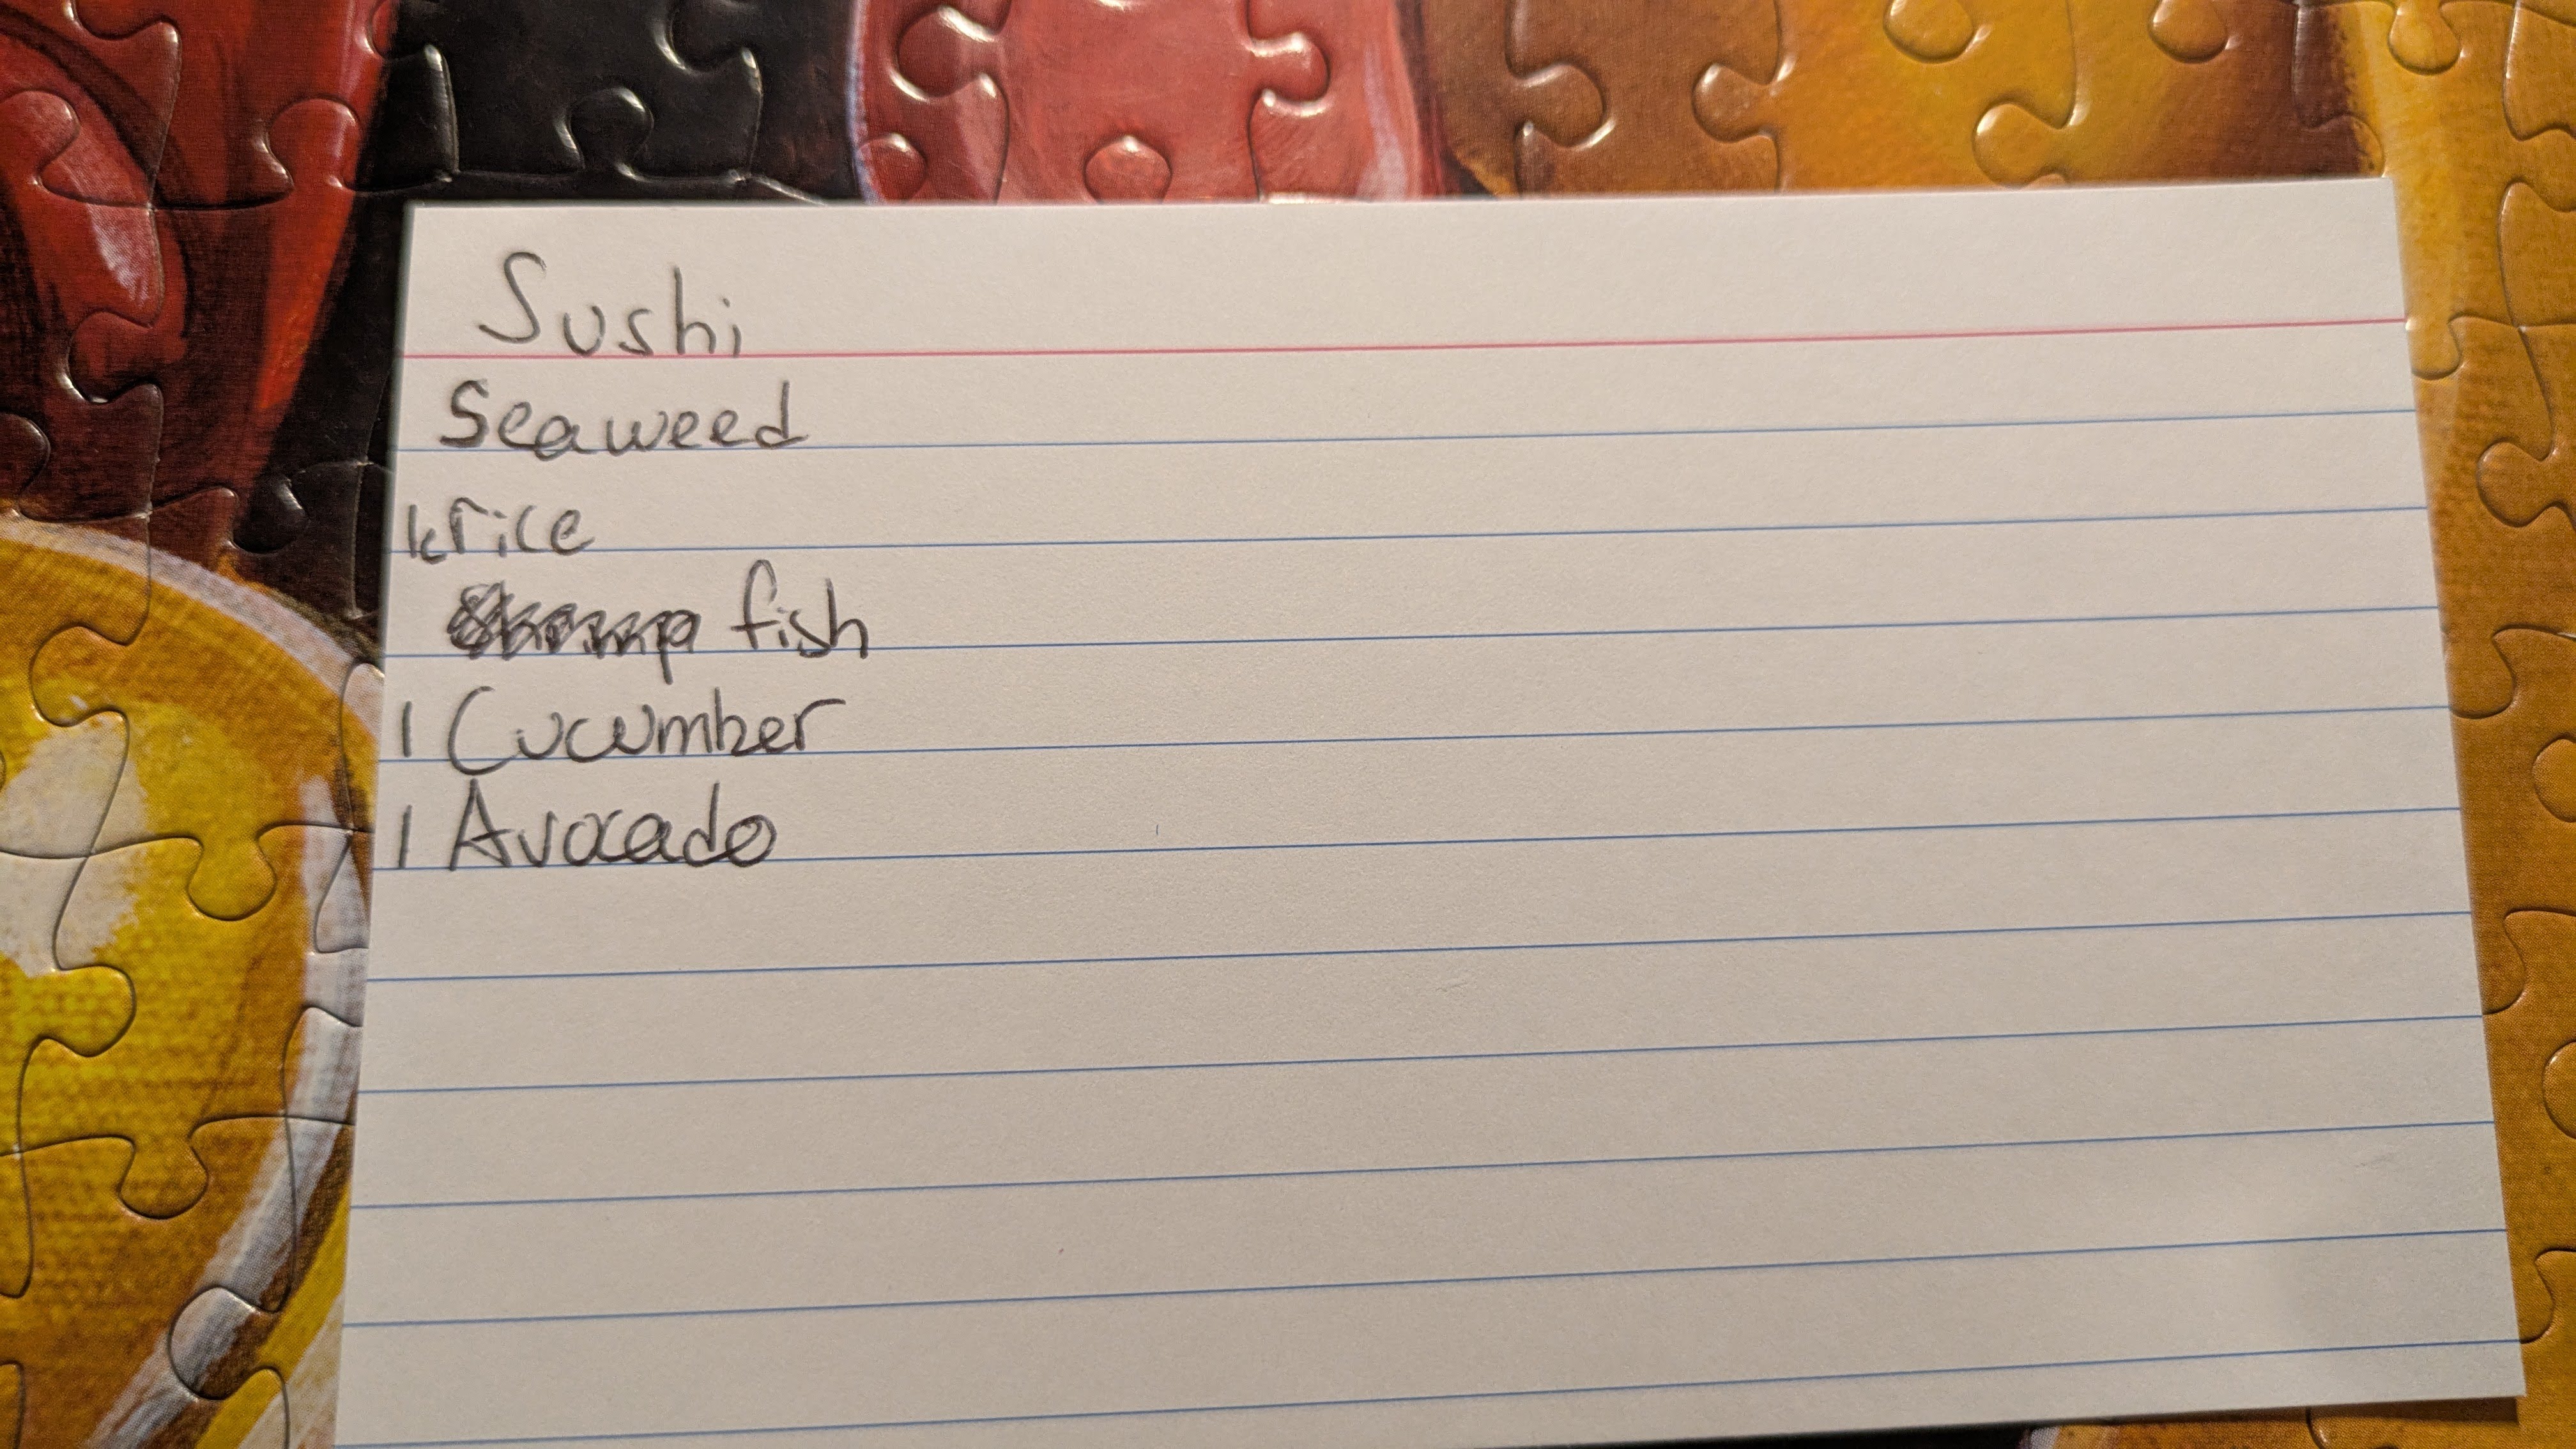 Sushi
Seaweed
1c rice
fish
1 Cucumber
1 Avocado